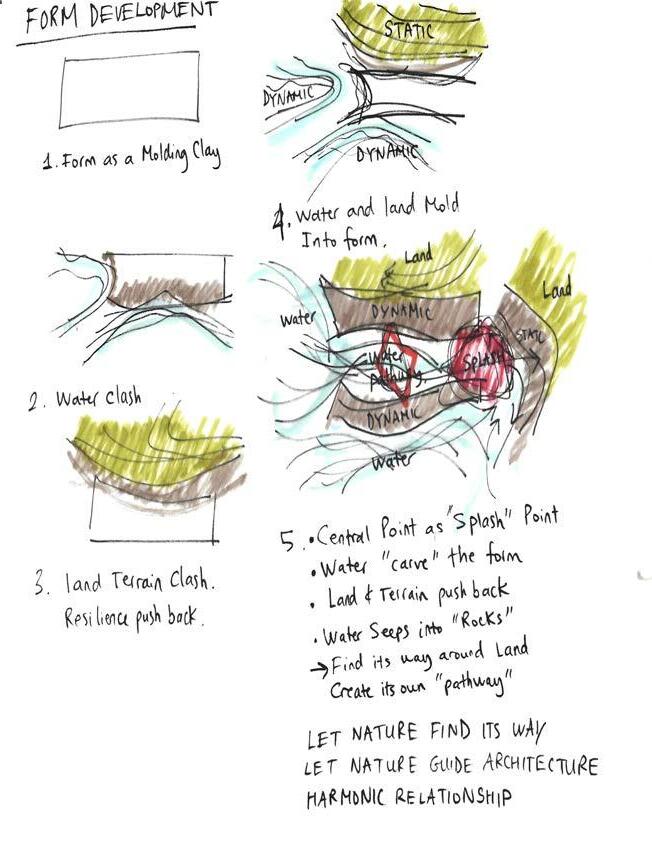 FORM DEVELOPMENT
1. Form as a Molding Clay
2. Water Clash
3. land Terrain Clash.
Resilience push back.
STATIC
DYNAMIC
DYNAMIC
4. Water and land Mold
Into form.
Land
Land
DYNAMIC
Water
STATIC
Water
Pathway
SPLASH
DYNAMIC
Water
5. • Central Point as "Splash" Point
• Water "carve" the form
• Land & Terrain push back
• Water Seeps into "Rocks"
→ Find its way around Land
Create its own "pathway"
LET NATURE FIND ITS WAY
LET NATURE GUIDE ARCHITECTURE
HARMONIC RELATIONSHIP